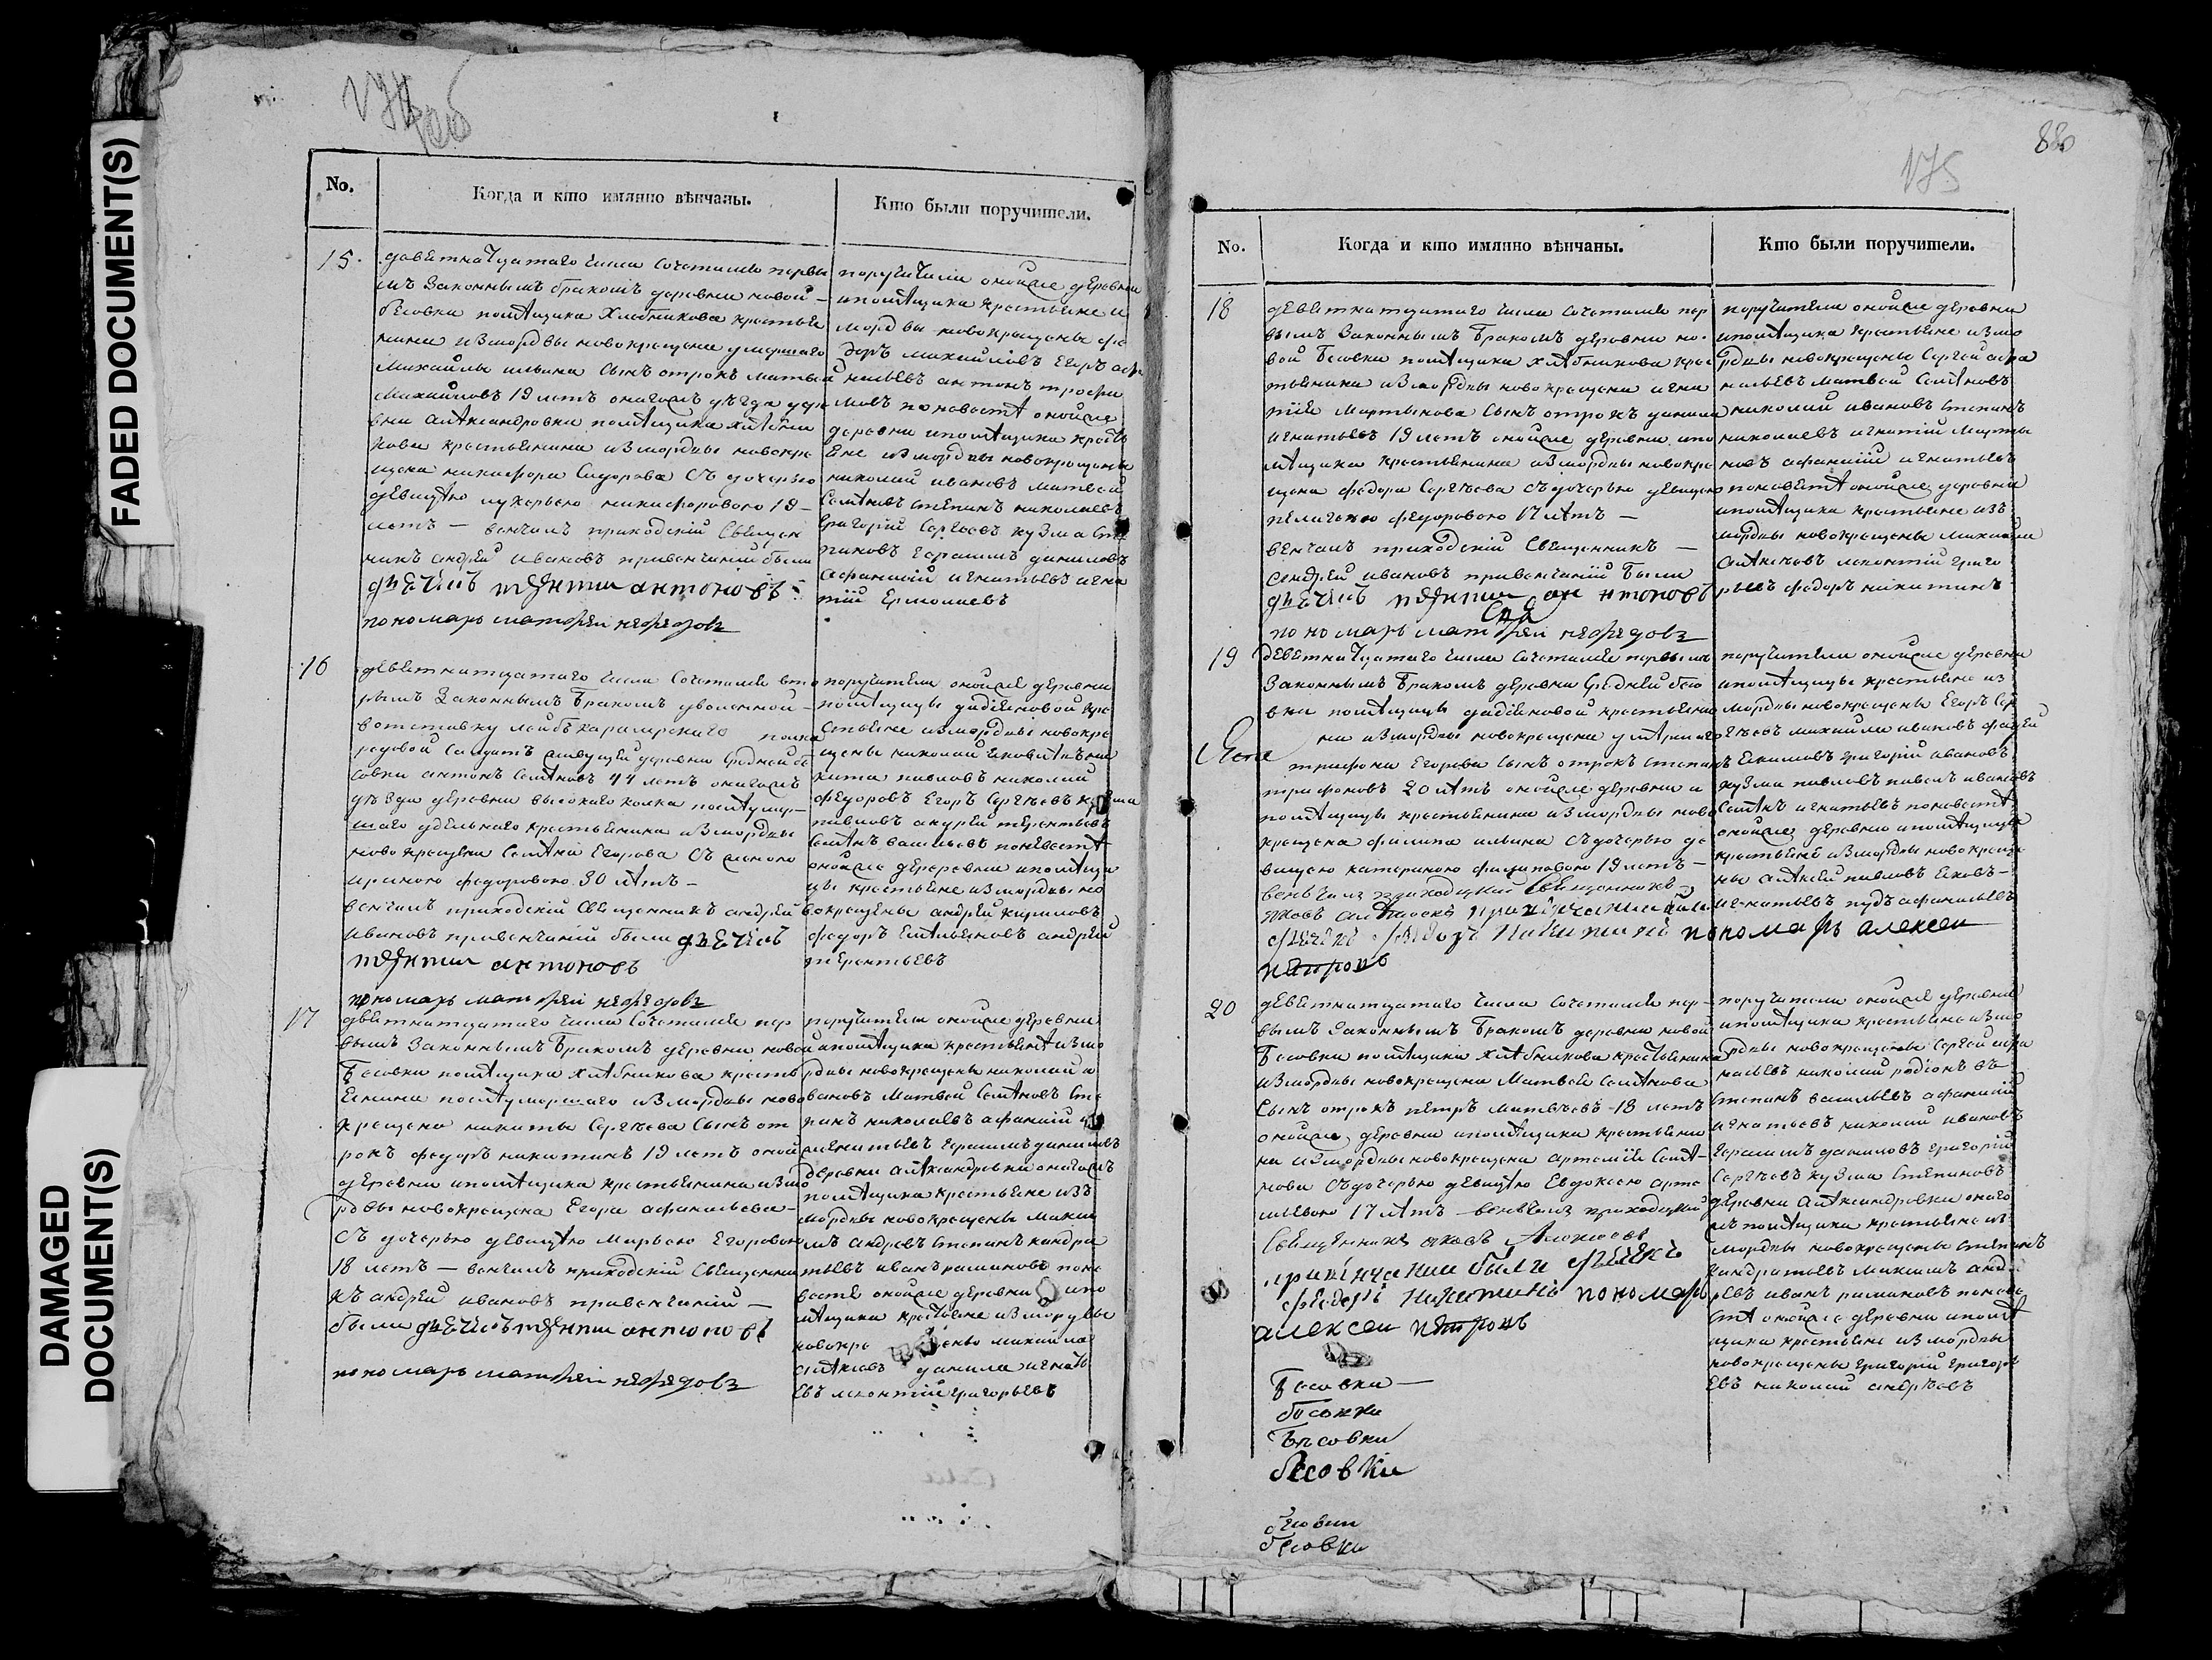 FADED DOCUMENT(S)
DAMAGED
DOCUMENT(S)
No.
Когда и кто имянно вѣнчаны.
Кто были поручители.
15
деветнатцатаго числа сочетался первы
мъ законнымъ бракомъ деревни новой
бесовки помѣщика Хлебникова крестья
нина измордвы новокрещена умершаго
Михайлы ильина сынъ отрокъ матвей
Михайловъ 19 летъ онагожъ уѣзда дере
вни алѣксандровки помѣщика хлѣбни
кова крестьянина измордвы новокре
щена никифора Сидорова съ дочерью
девицею лукерьею никифоровою 19
летъ — венчалъ приходскій Священ
никъ андрей ивановъ привенчаніи были
дьЕчИкъ терентии антоновъ
пономарь матфеи нефедовъ
поручители онойже деревни
ипомѣщика крестьяне и
мордвы новокрещены фе
доръ михайловъ Егоръ афо
насьевъ антонъ трофи
мовъ поневестѣ онойже
деревни ипомѣщика кресть
Ене измордвы новокрещены
николай ивановъ матвей
Семѣновъ степанъ николаевъ
Григорій Сергеевъ кузма сте
пановъ Герасимъ даниловъ
афанасій игнатьевъ игна
тій Ермолаевъ
16
деветнатцатаго числа сочетался вто
рымъ законнымъ бракомъ уволенной
вотставку лейбъ полка
редовой Салдатъ живущей деревни Средней бе
совки антонъ Семѣновъ 44 летъ онагожъ
уѣзда деревни высокаго колка послѣ умер
шаго удельнаго крестьянина измордвы
новокрещена Семѣна Егорова съ женою
ириною федоровою 30 лѣтъ —
венчалъ приходскій священникъ андрей
ивановъ привенчаніи были дьЕчИкъ
терентии антоновъ
пономарь матфеи нефедовъ
поручители онойже деревни
помѣщицы дадіяновой кре
стьяне измордвы новокре
щены николай Яковлѣвъ ни
кита павловъ николай
федоровъ Егоръ Сергѣевъ кузма
павловъ андрей терентьевъ
Семѣнъ васильевъ поневестѣ
онойже деревни ипомѣщи
цы крестьяне измордвы но
вокрещены андрей кириловъ
федоръ Емѣльяновъ андрей
терентьевъ
17
деветнатцатаго числа Сочетался пер
вымъ законнымъ бракомъ деревни новой
бесовки помѣщика хлѣбникова кресть
Енина послѣумершаго измордвы ново
крещена никиты Сергѣева Сынъ от
рокъ федоръ никитинъ 19 летъ онойже
деревни ипомѣщика крестьянина измо
рдвы новокрещена Егора афанасьева
съ дочерью девицею Марьею Егоровою
18 летъ — венчалъ приходскій Священни
къ андрей ивановъ привенчаніи —
были дьЕчИкъ терентии антоновъ
пономарь матфеи нефедовъ
поручители онойже деревни
ипомѣщика крестьянѣ измо
рдвы новокрещены николай и
вановъ Матвей Семѣновъ сте
панъ николаевъ афанасій
игнатьевъ Герасимъ даниловъ
деревни алѣксандровки онагожъ
помѣщика крестьяне изъ
мордвы новокрещены макси
мъ андревъ степанъ кандра
тьевъ иванъ романовъ поне
весте онойже деревни ипо
мѣщика крестьяне измордвы
новокрещены михаила
алѣксевъ данила игнать
Евъ леонтій григорьевъ
175
880
No.
Когда и кто имянно вѣнчаны.
Кто были поручители.
18
деветнатцатаго числа сочетался пер
вымъ законнымъ бракомъ деревни но
вой бесовки помѣщика хлѣбникова крес
тьянина измордвы новокрещена игна
тія Мартынова сынъ отрокъ данила
игнатьевъ 19 летъ онойже деревни ипо
мѣщика крестьянина измордвы новокре
щена федора Сергѣева съдочерью девицею
пелагеею федоровою 17 лѣтъ —
венчалъ приходскій Священникъ —
андрей ивановъ привенчаніи были
дьЕчИкъ терентии антоновъ
пономарь матфеи нефедовъ
поручители онойже деревни
ипомѣщика крестьяне измо
рдвы новокрещены Сергей афа
насьевъ матвей Семѣновъ
николай ивановъ степанъ
николаевъ игнатій марты
новъ афанасій игнатьевъ
поневѣстѣ онойже деревни
ипомѣщика крестьяне изъ
мордвы новокрещены михаила
алѣксевъ леонтій григо
рьевъ федоръ никитинъ
19
деветнатцатаго числа сочетался первымъ
законнымъ бракомъ деревни Средней бесо
вки помѣщицы дадіяновой крестьяни
на измордвы новокрещена умершаго
трифона Егорова сынъ отрокъ степанъ
трифоновъ 20 лѣтъ онойже деревни и
помѣщицы крестьянина измордвы ново
крещена филипа ильина съдочерью де
вицею катериною филиповою 19 летъ —
венчалъ приходцкии священникъ
яковъ алѣксеевъ привѣнчании были
дьячекъ федоръ Никитинъ пономарь алексеи
пѣтровъ
поручители онойже деревни
ипомѣщицы крестьяне из
мордвы новокрещены Егоръ Сер
гѣевъ михайла ивановъ фадей
Екимовъ григорій ивановъ
кузма павловъ павелъ ивановъ
Семѣнъ игнатьевъ поневестѣ
онойже деревни ипомѣщицы
крестьяне измордвы новокреще
ны алѣксей павловъ Ековъ
игнатьевъ афанасьевъ
20
деветнатцатаго числа сочетался пер
вымъ законнымъ бракомъ деревни новой
бесовки помѣщика хлѣбникова крестьянина
измордвы новокрещена Матвея Семѣнова
сынъ отрокъ пѣтръ матвѣевъ 18 летъ
онойже деревни ипомѣщика крестьяни
на измордвы новокрещена артемія Семѣ
нова съдочерью девицею Евдокеею арте
мьевою 17 лѣтъ венчалъ приходцкой
священникъ яковъ Алексеевъ
привѣнчании были дьячекъ
федоръ Никитинъ пономарь
алексеи пѣтровъ
поручители онойже деревни
ипомѣщика крестьяне измо
рдвы новокрещены Сергей афа
насьевъ николай родіоновъ
степанъ васильевъ афанасій
игнатьевъ николай ивановъ
Герасимъ даниловъ григорій
Сергѣевъ кузма степановъ
деревни алѣксандровки онаго
жъ помѣщика крестьяне из
мордвы новокрещены степанъ
кандратьевъ максимъ анд
ревъ иванъ романовъ поневе
стѣ онойже деревни ипомѣ
щика крестьяне измордвы
новокрещены григорій григорь
евъ николай андрѣевъ
Бесовки —
бесовки
Бесовки
бесовки
бесовки
бесовки